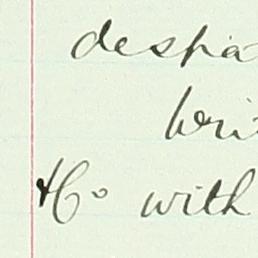 despa
bri
&Co with